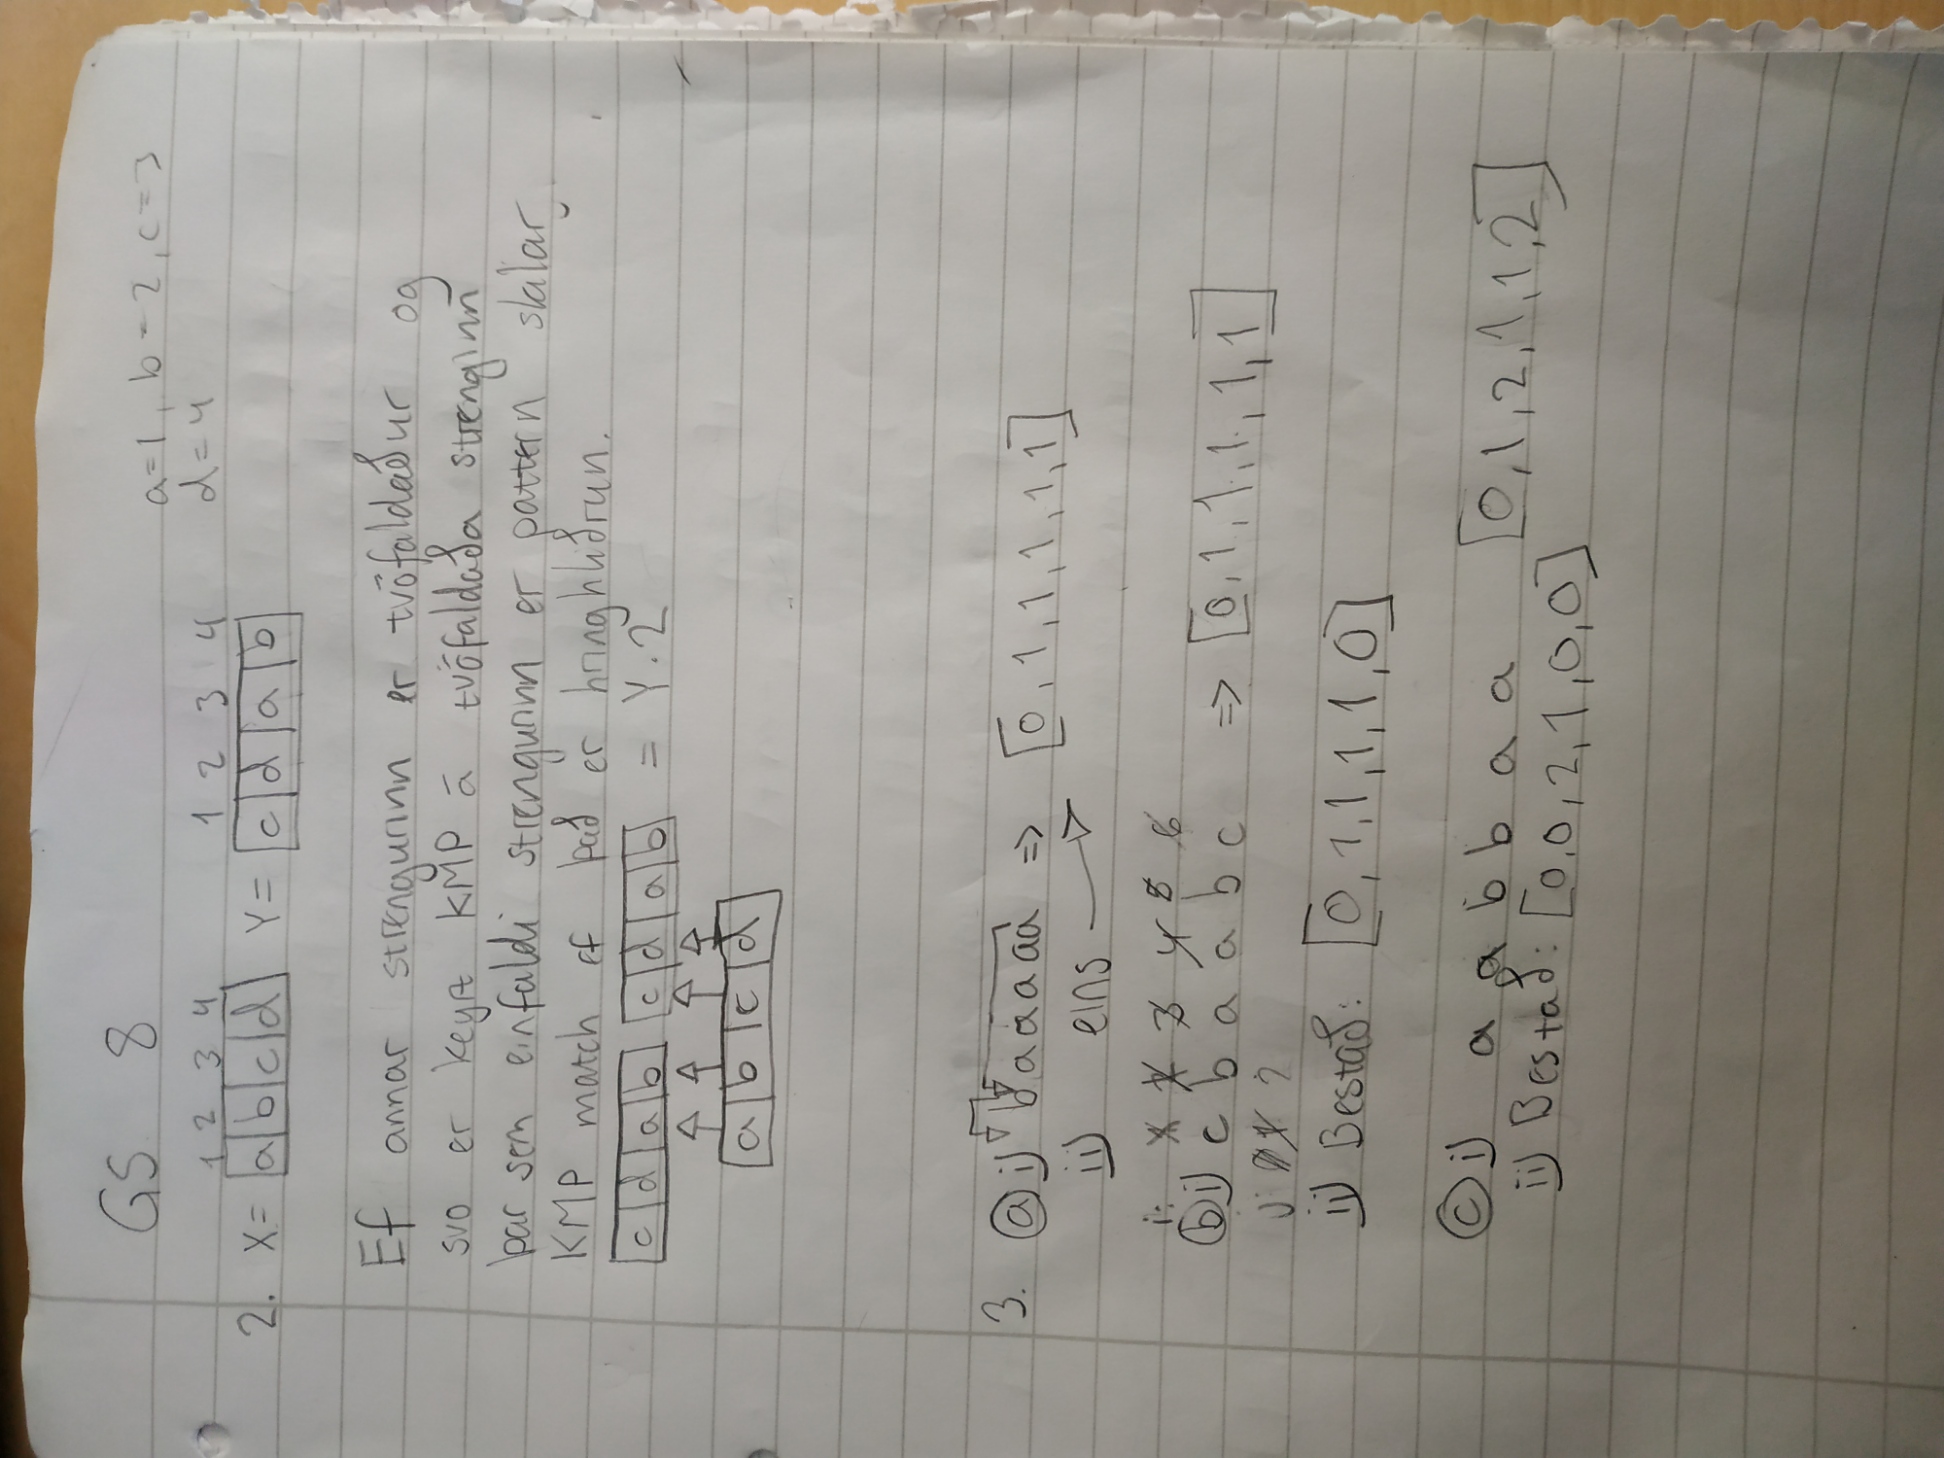 GS 8
a=1, b=2, c=3
d=4
1 2 3 4 1 2 3 4
2. X= a b c d Y= c d a b
Ef annar strengurinn er tvöfaldaður og
svo er keyrt KMP á tvöfaldaða strenginn
þar sem einfaldi strengurinn er pattern skilar
KMP match ef það er hringhliðrun.
c d a b c d a b = Y·2
a b c d
3. a i) b a a a a a => [0, 1, 1, 1, 1, 1]
ii) eins
i: 1 2 3 4 5 6
b i) c b a a b c => [0, 1, 1, 1, 1, 1]
j 0 1 2
ii) Bestað: [0, 1, 1, 1, 1, 0]
c i) a a b b a a [0, 1, 2, 1, 1, 2]
ii) Bestað: [0, 0, 2, 1, 0, 0]